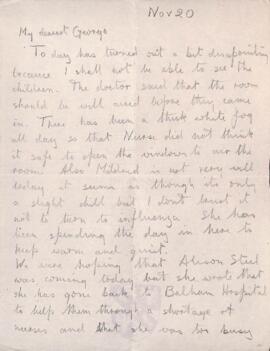 Nov 20
My dearest George
To day has turned out a bit disapointing
because I shall not be able to see the
children. The doctor said that the room
should be well aired before they came
in. There has been a thick white fog
all day so that Nurse did not think
it safe to open the windows to air the
room. Also Mildred is not very well
today it seems as though its only
a slight chill but I don't want it
not to turn to influenza. She has
been spending the day in here to
keep warm and quiet.
We were hoping that Alison Steel
was coming today but she wrote that
she has gone back to Balham Hospital
to help them through a shortage of
nurses and that she was too busy